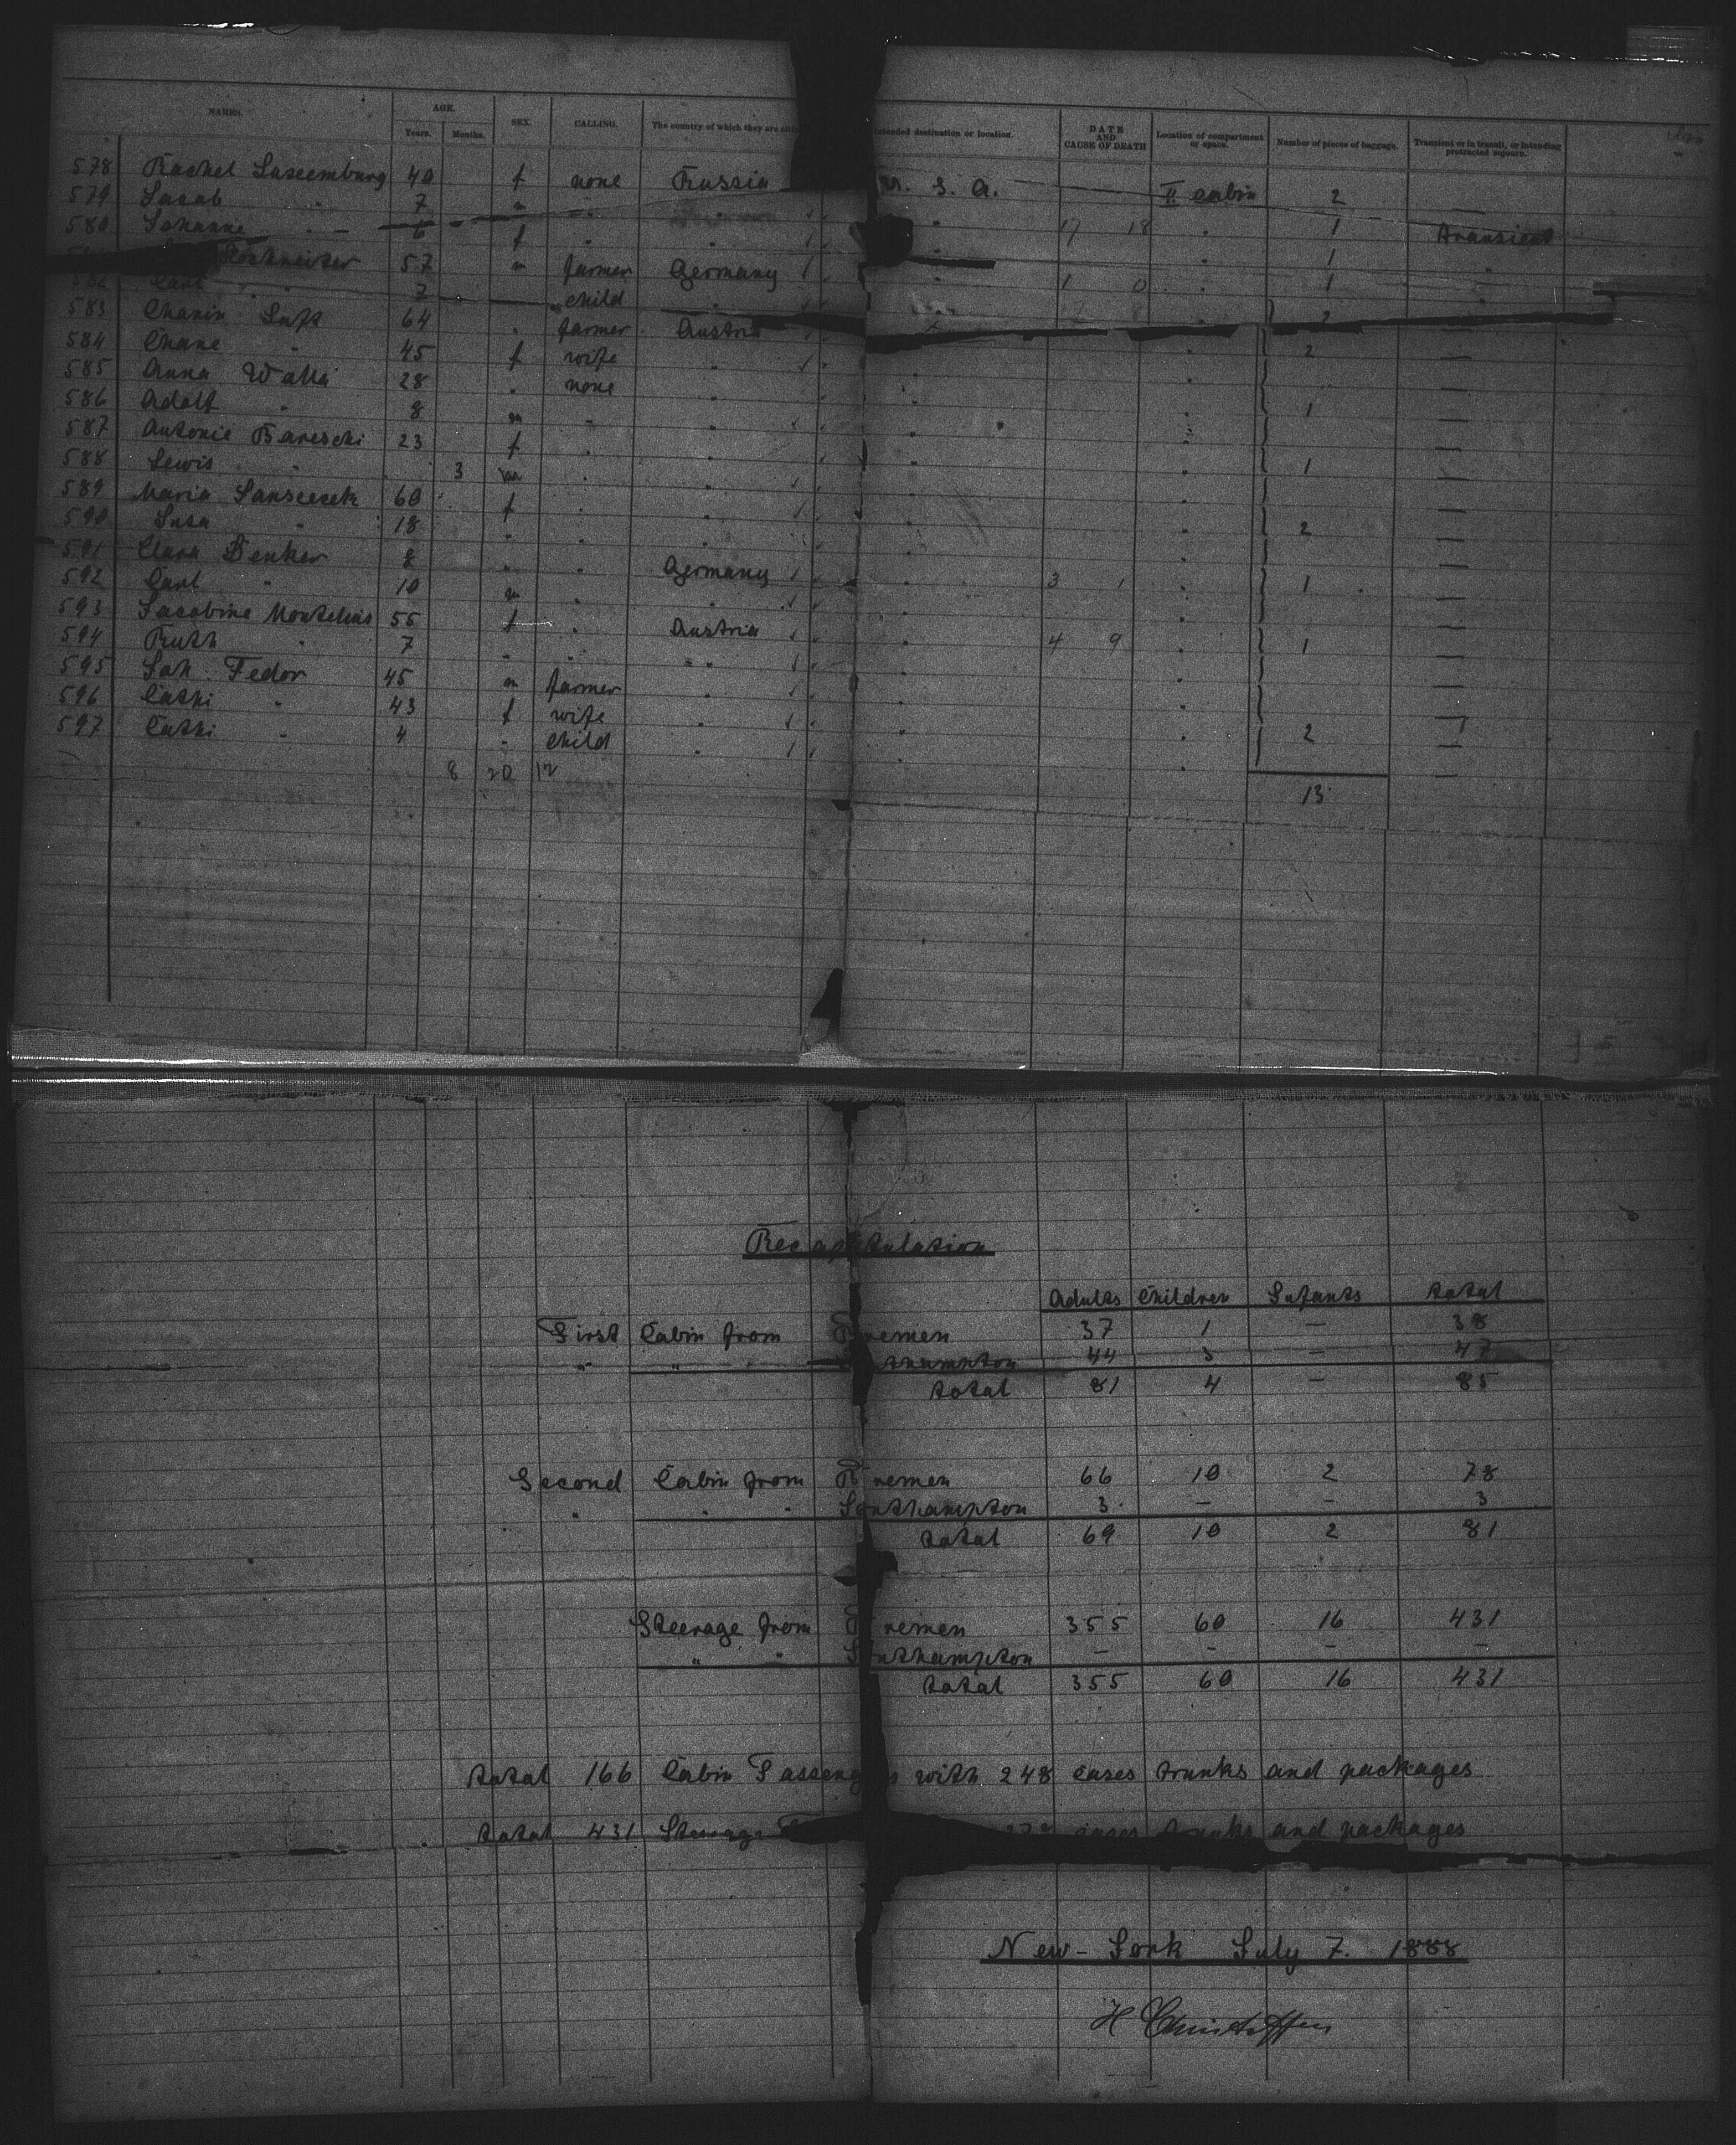 NAMES. AGE. Years. Months. SEX. CALLING. The country of which they are citi Intended destination or location. DATE AND CAUSE OF DEATH Location of compartment or space. Number of pieces of baggage. Transient or in transit, or intending protracted sojourn.
578 Rachel Luxemburg 40 f none Russia U. S. A. II cabin 2
579 Jacob " 7 m " " "
580 Johanne " 6 f " " " 17 18 " 1 transient
57 m farmer Germany " " 1
582 Carl " 7 " child " " 1 0 " 1
583 Chanin Luft 64 " farmer Austria "
584 Chane " 45 f wife " " 2 —
585 Anna Walla 28 " none " " " —
586 Adolf " 8 m " " " " 1 —
587 Antonie Bareschi 23 f " " " " —
588 Lewis " 3 m " " " " 1 —
589 Maria 60 f " " " " —
590 18 " " " " " 2 —
591 Clara Denker 8 " " Germany " " —
592 Carl " 10 m " " " 3 1 " 1 —
593 Jacobine 55 f " Austria " " —
594 Ruth " 7 " " " " 4 9 " 1 —
595 Joh. Fedor 45 m farmer " " " —
596 Cathi " 43 f wife " " " —
597 Cathi " 4 " child " " " 2 —
8 20 12 13
Recapitulation
Adults Children Infants total
First Cabin from Bremen 37 1 — 38
" " " thampton 44 3 — 47
total 81 4 — 85
Second Cabin from Bremen 66 10 2 78
" " " Southampton 3 — — 3
total 69 10 2 81
Steerage from Bremen 355 60 16 431
" " Southampton — — — —
total 355 60 16 431
total 166 Cabin Passeng s with 248 cases trunks and packages
total 431 Steerage cases trunks and packages
New-York July 7. 1888
H Christoffers